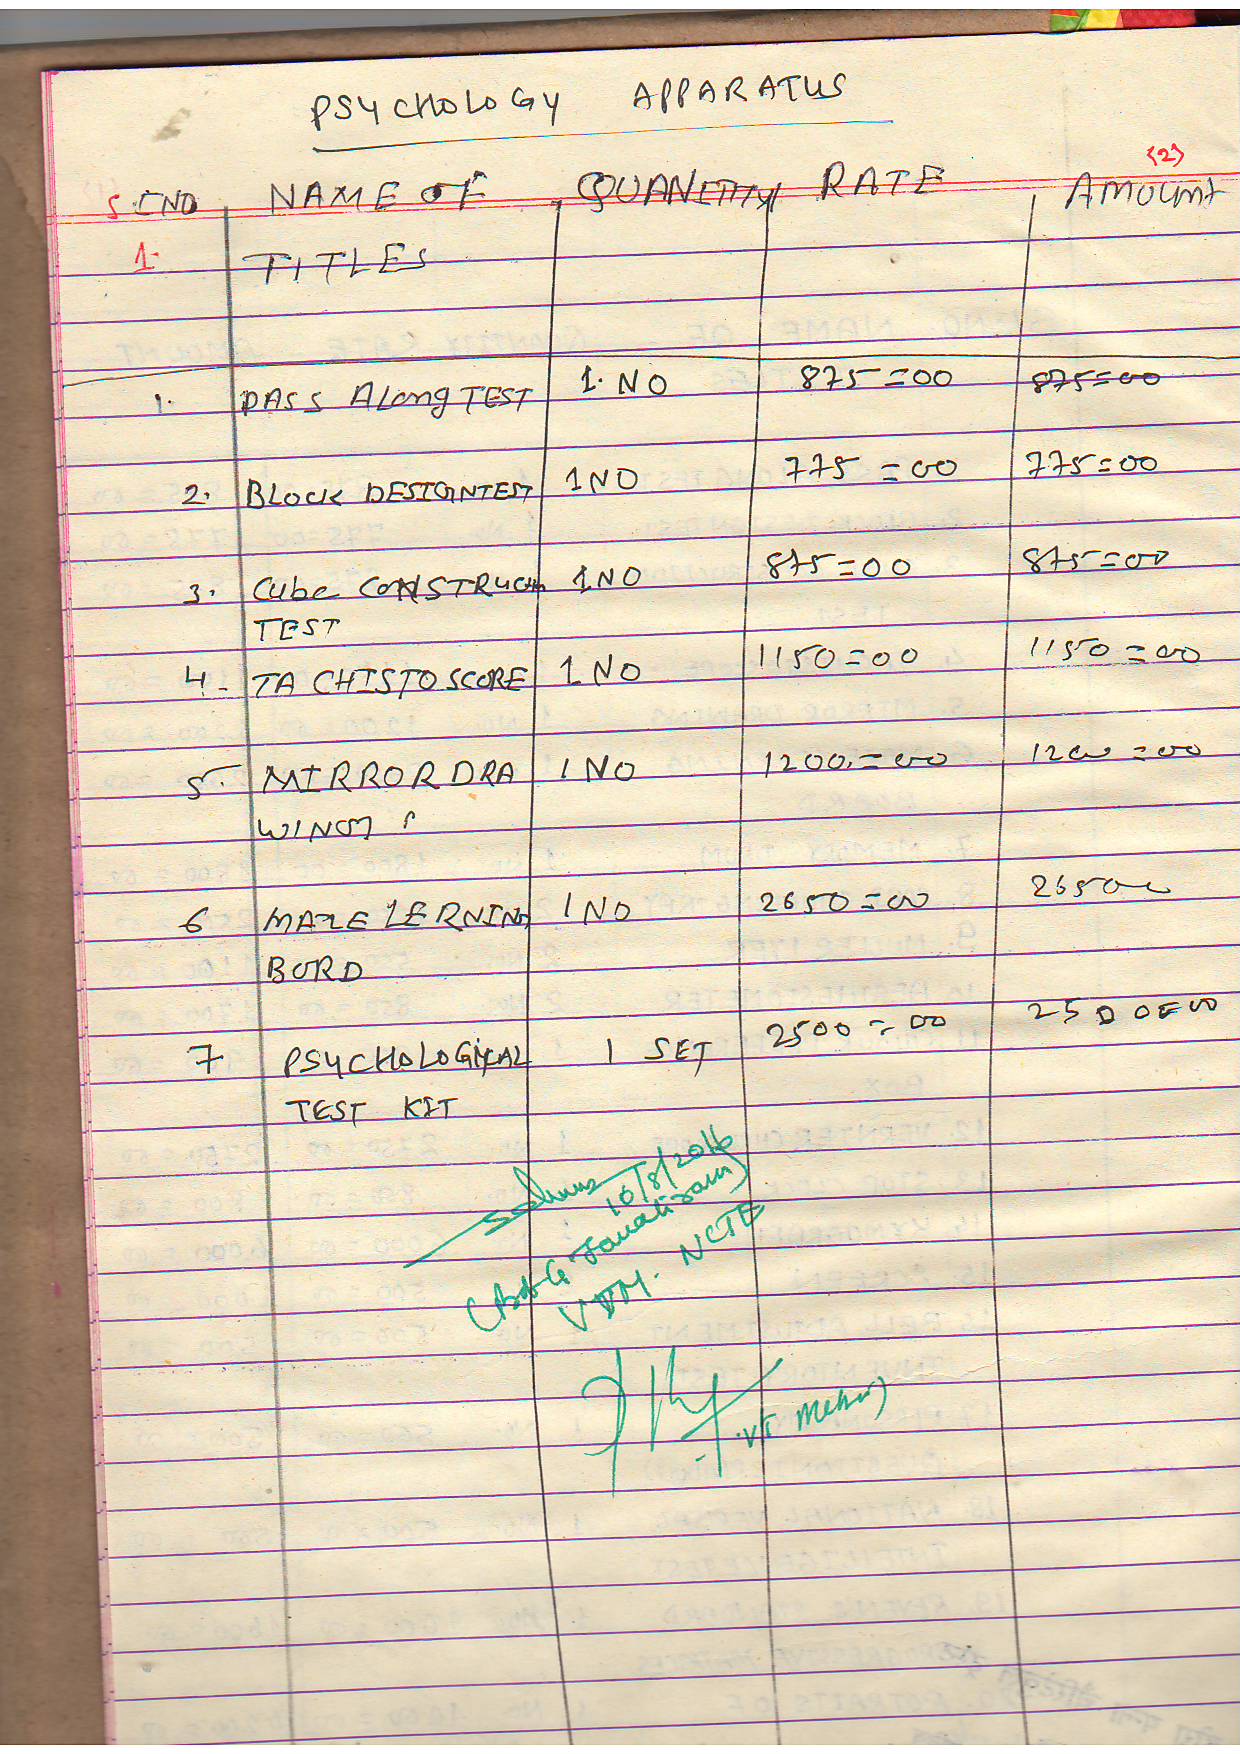 PSYCHOLOGY APPARATUS
(2)
S.NO NAME OF QUANTITY RATE AMOUNT
1. TITLES
1. PASS Along TEST 1. NO 875=00 875=00
2. BLOCK DESIGN TEST 1 NO 775=00 775=00
3. Cube CONSTRUCTN 1 NO 875=00 875=00
TEST
4. TA CHISTOSCORE 1 NO 1150=00 1150=00
5. MIRROR DRA 1 NO 1200=00 1200=00
WING
6 MAZE LERNING 1 NO 2650=00 2650
BORD
7 PSYCHOLOGICAL 1 SET 2500=00 2500=00
TEST KIT
10/8/2016
NCTE